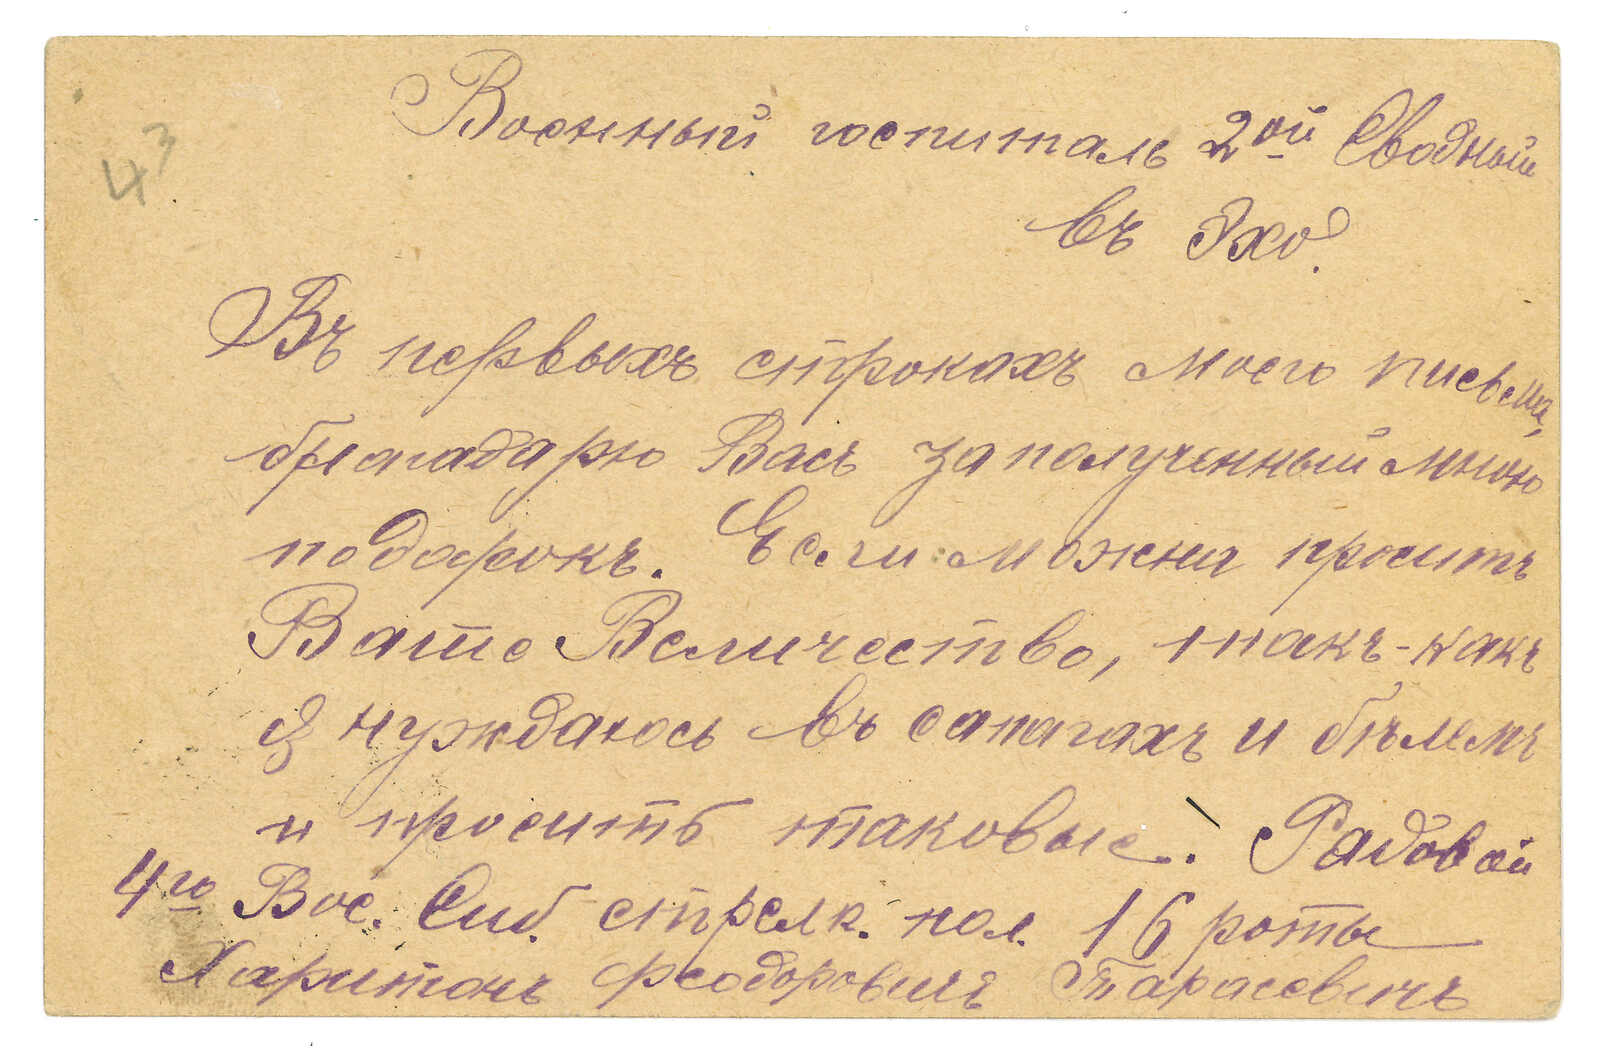 43
Военный госпиталь 2ой Сводный
въ Эхо.
Въ первыхъ строкахъ моего письма,
благадарю Васъ за полученный мною
подарокъ. Если можна просить
Ваше Величество, такъ-какъ
я нуждаюсь въ сапагахъ и бѣлемъ
и просить таковые. Радовой
4го Вос. Сиб. стрелк. пол. 16 роты
Харитонъ Феодоровичъ Тарасевичъ